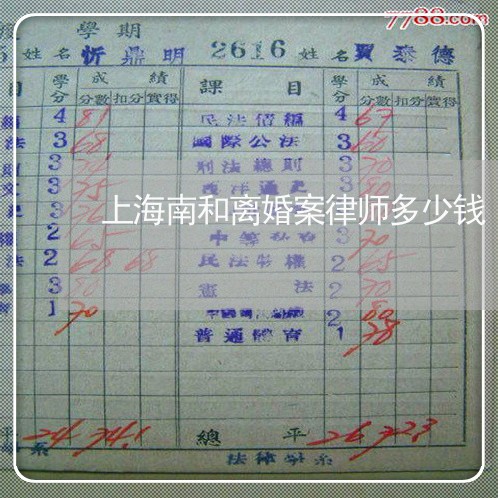 7788.com
學期
姓名 忻鼎明 2616 姓名 賈泰德
目 學分 成績 課目 學分 成績
分數 扣分 實得 分數 扣分 實得
4 81 民法債編 4 67
法 3 68 國際公法 3 60
3 刑法總則 3 70
文 3 75 西洋通史 3 80
上海南和离婚案律师多少钱
2 65 3 70
法 2 68 68 民法物權 2 65
3 80 憲法 2 70
1 70 2 80
普通體育 1 78
平 24 74.1 總平 26 72.3
系 法律學系